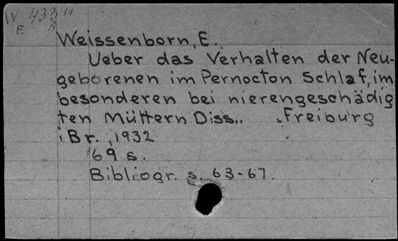 W 433 u
E
Weissenborn, E.
Ueber das Verhalten der Neu-
geborenen im Pernocton Schlaf, im
besonderen bei nierengeschädig
ten Müttern Diss.. Freiburg
i Br., 1932
69 s.
Bibliogr. s. 63-67.